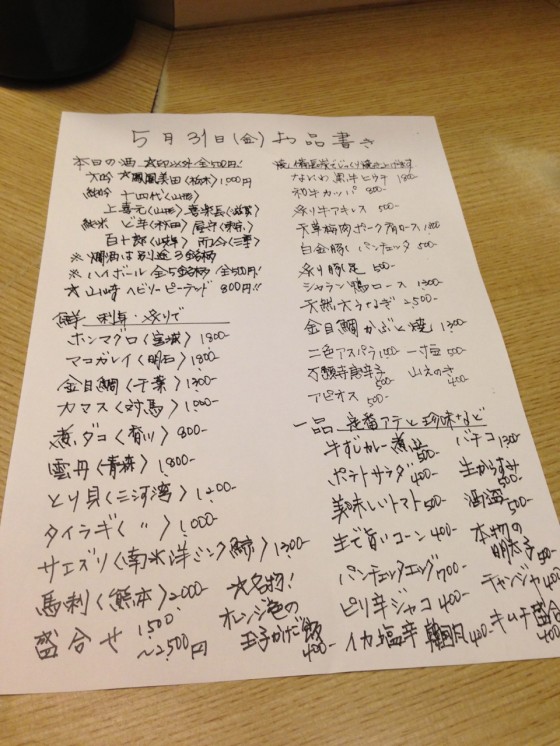 5月31日(金) お品書き
本日の酒 ☆印以外全500円!
大吟 ☆鳳凰美田〈栃木〉1,000円
純吟 十四代〈山形〉
上喜元〈山形〉喜楽長〈滋賀〉
純米 ど辛〈秋田〉
百十郎〈岐阜〉而今〈三重〉
※燗酒は別途3銘柄
※ハイボール 全5銘柄 全500円!
☆山崎ヘビリーピーテッド 800円!!
鮮 刺身・炙りで
ホンマグロ〈宮城〉1800-
マコガレイ〈明石〉1300-
金目鯛〈千葉〉1300-
カマス〈対馬〉1,000-
煮ダコ〈香川〉800-
雲丹〈青森〉1,800-
とり貝〈三河湾〉1,200-
タイラギ〈 〃 〉1,000-
サエズリ〈南氷洋ミンク鯨〉1300-
馬刺〈熊本〉2000-
盛合せ 1,500〜2,500円
☆名物!
オレンジ色の
玉子かけご飯
400-
なにわ黒牛ヒウチ 1800-
和牛カッパ 800-
炙り牛アキレス 500-
天草梅肉ポーク肩ロース
白金豚パンチェッタ 500-
炙り豚足 500-
シャラン鴨ロース 1300-
天然大うなぎ 2,500-
金目鯛かぶと焼 1300-
二色アスパラ 一寸豆 500-
万願寺唐辛子 500- 山えのき 400-
アピオス 500-
一品 定番アテと珍味など
牛すじカレー煮込 500- バチコ 1300-
ポテトサラダ 400- 生からすみ 500-
美味しいトマト 500- 酒盗 500-
生で旨いコーン 400- 本物の明太子 500-
パンチェッタエッグ 700- チャンジャ 400-
ピリ辛ジャコ 400- キムチ盛合 400-
イカの塩辛 400-